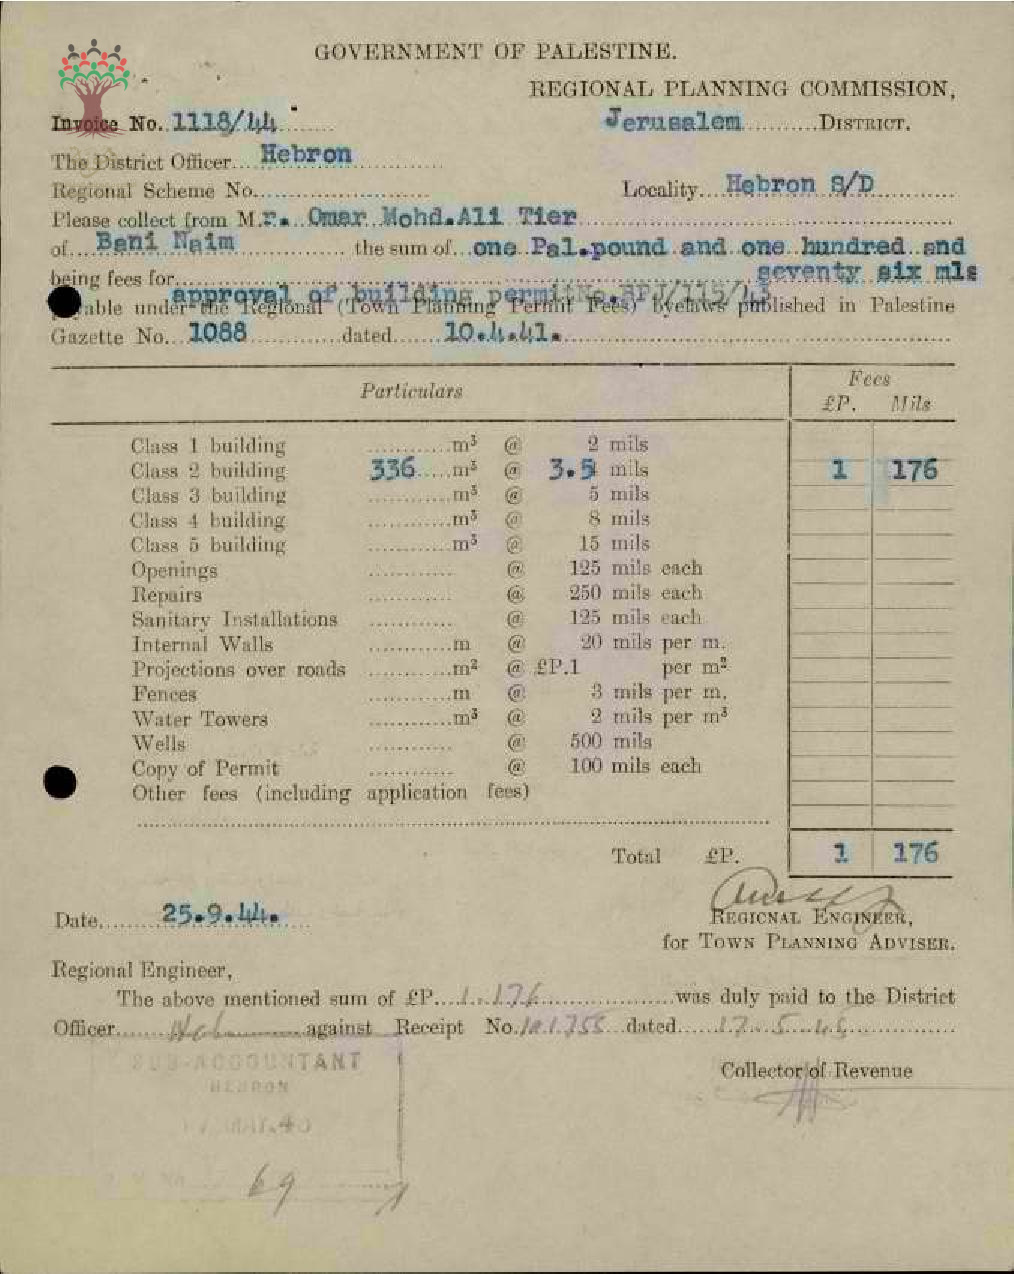 GOVERNMENT OF PALESTINE.
REGIONAL PLANNING COMMISSION,
Invoice No. 1118/44 Jerusalem DISTRICT.
The District Officer Hebron
Regional Scheme No. Locality Hebron S/D
Please collect from Mr. Omar Mohd.Ali Tier
of Bani Naim the sum of one Pal.pound and one hundred and
being fees for seventy six mls
approval of building permit
able under the Regional (Town Planning Permit Fees) byelaws published in Palestine
Gazette No. 1088 dated 10.4.41.
Particulars Fees
£P. Mils
Class 1 building m³ @ 2 mils
Class 2 building 336 m³ @ 3.5 mils 1 176
Class 3 building m³ @ 5 mils
Class 4 building m³ @ 8 mils
Class 5 building m³ @ 15 mils
Openings @ 125 mils each
Repairs @ 250 mils each
Sanitary Installations @ 125 mils each
Internal Walls m @ 20 mils per m.
Projections over roads m² @ £P.1 per m²
Fences m @ 3 mils per m.
Water Towers m³ @ 2 mils per m³
Wells @ 500 mils
Copy of Permit @ 100 mils each
Other fees (including application fees)
Total £P. 1 176
Date 25.9.44.
REGIONAL ENGINEER,
for TOWN PLANNING ADVISER.
Regional Engineer,
The above mentioned sum of £P. 1.176 was duly paid to the District
Officer against Receipt No. dated 17.5.45
SUB-ACCOUNTANT
HEBRON
Collector of Revenue
69